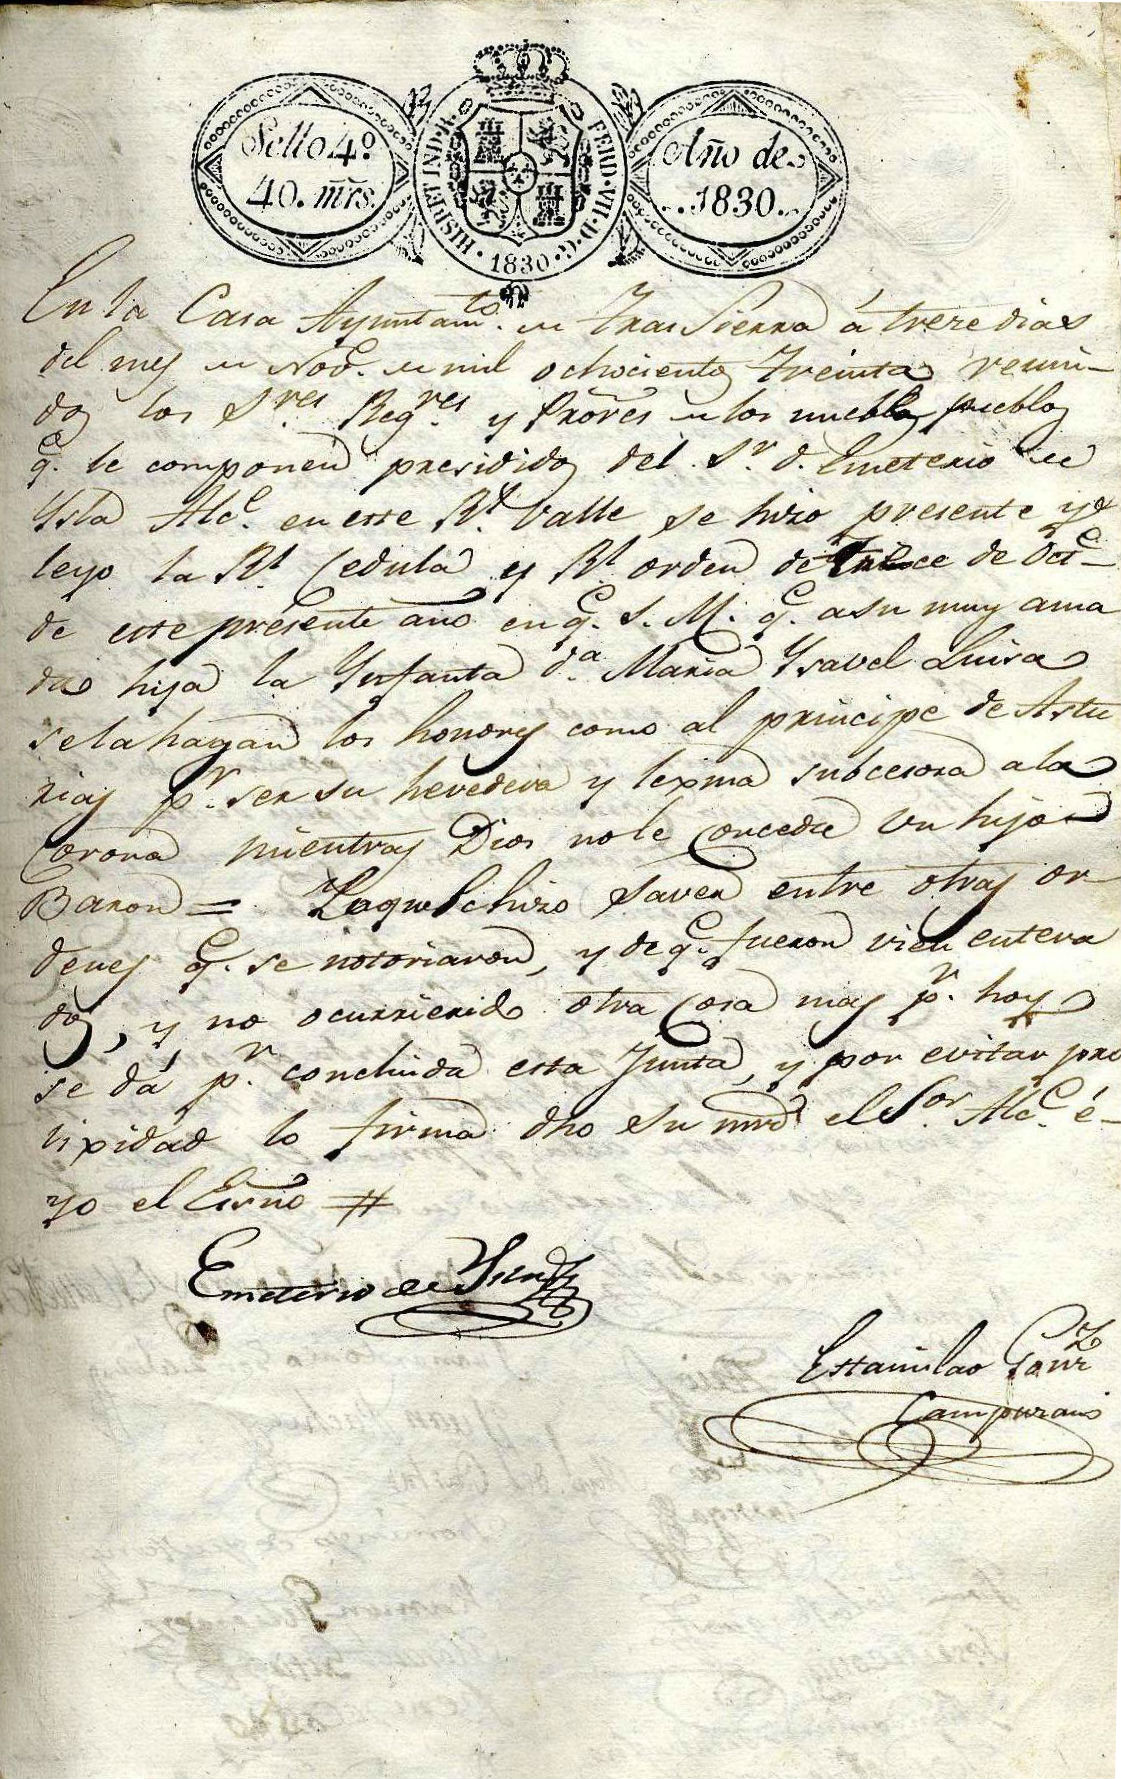 Sello 4º
40. mrs.
HISP. ET IND. R.
FERD. VII. D. G.
1830
Año de
1830.
En la Casa Ayuntamto. de Tras Sierra á trece dias
del mes de Nove. de mil ochocientos treinta reuni-
dos los Sres. Regres. y Prores de los pueblos
q. le componen presididos del Sr. D. Emeterio de
Ysla Alce. en este Rl. Valle se hizo presente y
leyo la Rl Cedula y Rl orden de trece de Octe-
de este presente año en q. S. M. q. a su muy ama
da hija la Ynfanta Da. Maria Ysavel Luisa
se la hagan los honores como al principe de Astu
rias pr. ser su heredera y lexma subcesora a la
Corona mientras Dios no le Concede un hijo
Baron = Lo que se hizo saver entre otras or-
denes q. se notoriaron, y de q. fueron vien entera
dos, y no ocurriendo otra Cosa mas pr. hoy
se dá pr. concluida esta Junta, y por evitar pro
lixidad lo firma dho su mrd el Sor. Alce. é-
yo el Esno #
Emeterio de
Estanislao Gonz
Campuzano